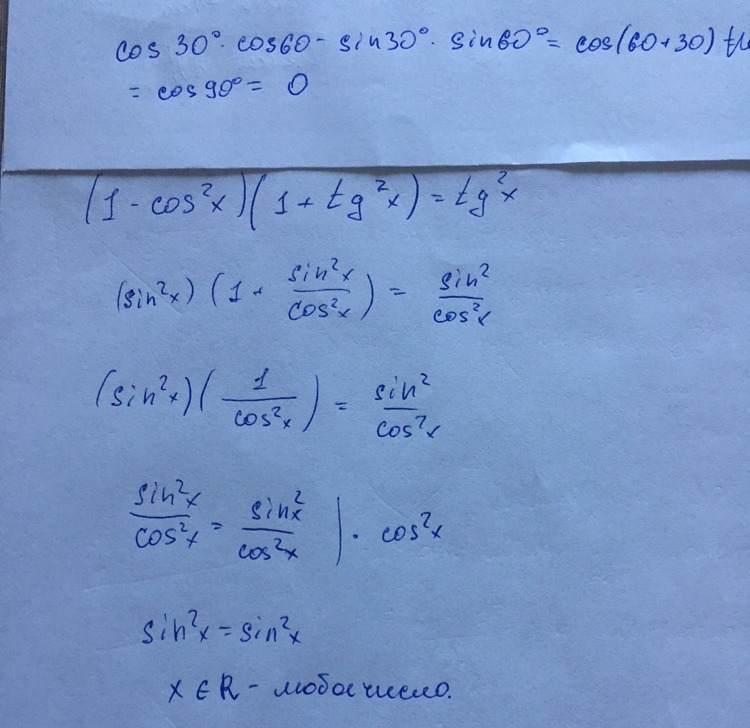 cos 30° · cos60 - sin30° · sin60° = cos(60+30)
= cos90° = 0
(1 - cos²x)(1 + tg²x) = tg²x
(sin²x)(1 + sin²x/cos²x) = sin²/cos²x
(sin²x)(1/cos²x) = sin²/cos²x
sin²x/cos²x = sin²x/cos²x | · cos²x
sin²x = sin²x
x ∈ R - любое число.